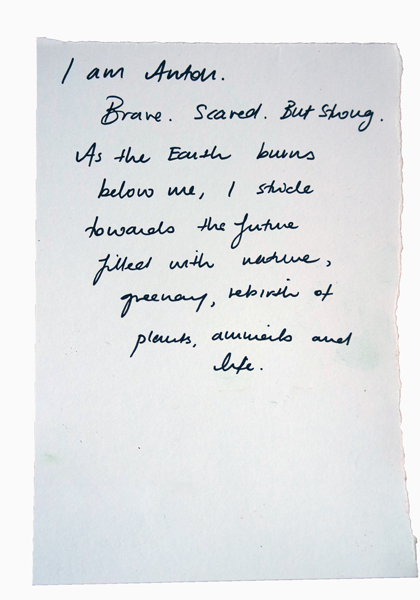 I am Anton.
Brave. Scared. But Strong.
As the Earth burns
below me, I stride
towards the future
filled with nature,
greenary, rebirth of
plants, animals and
life.